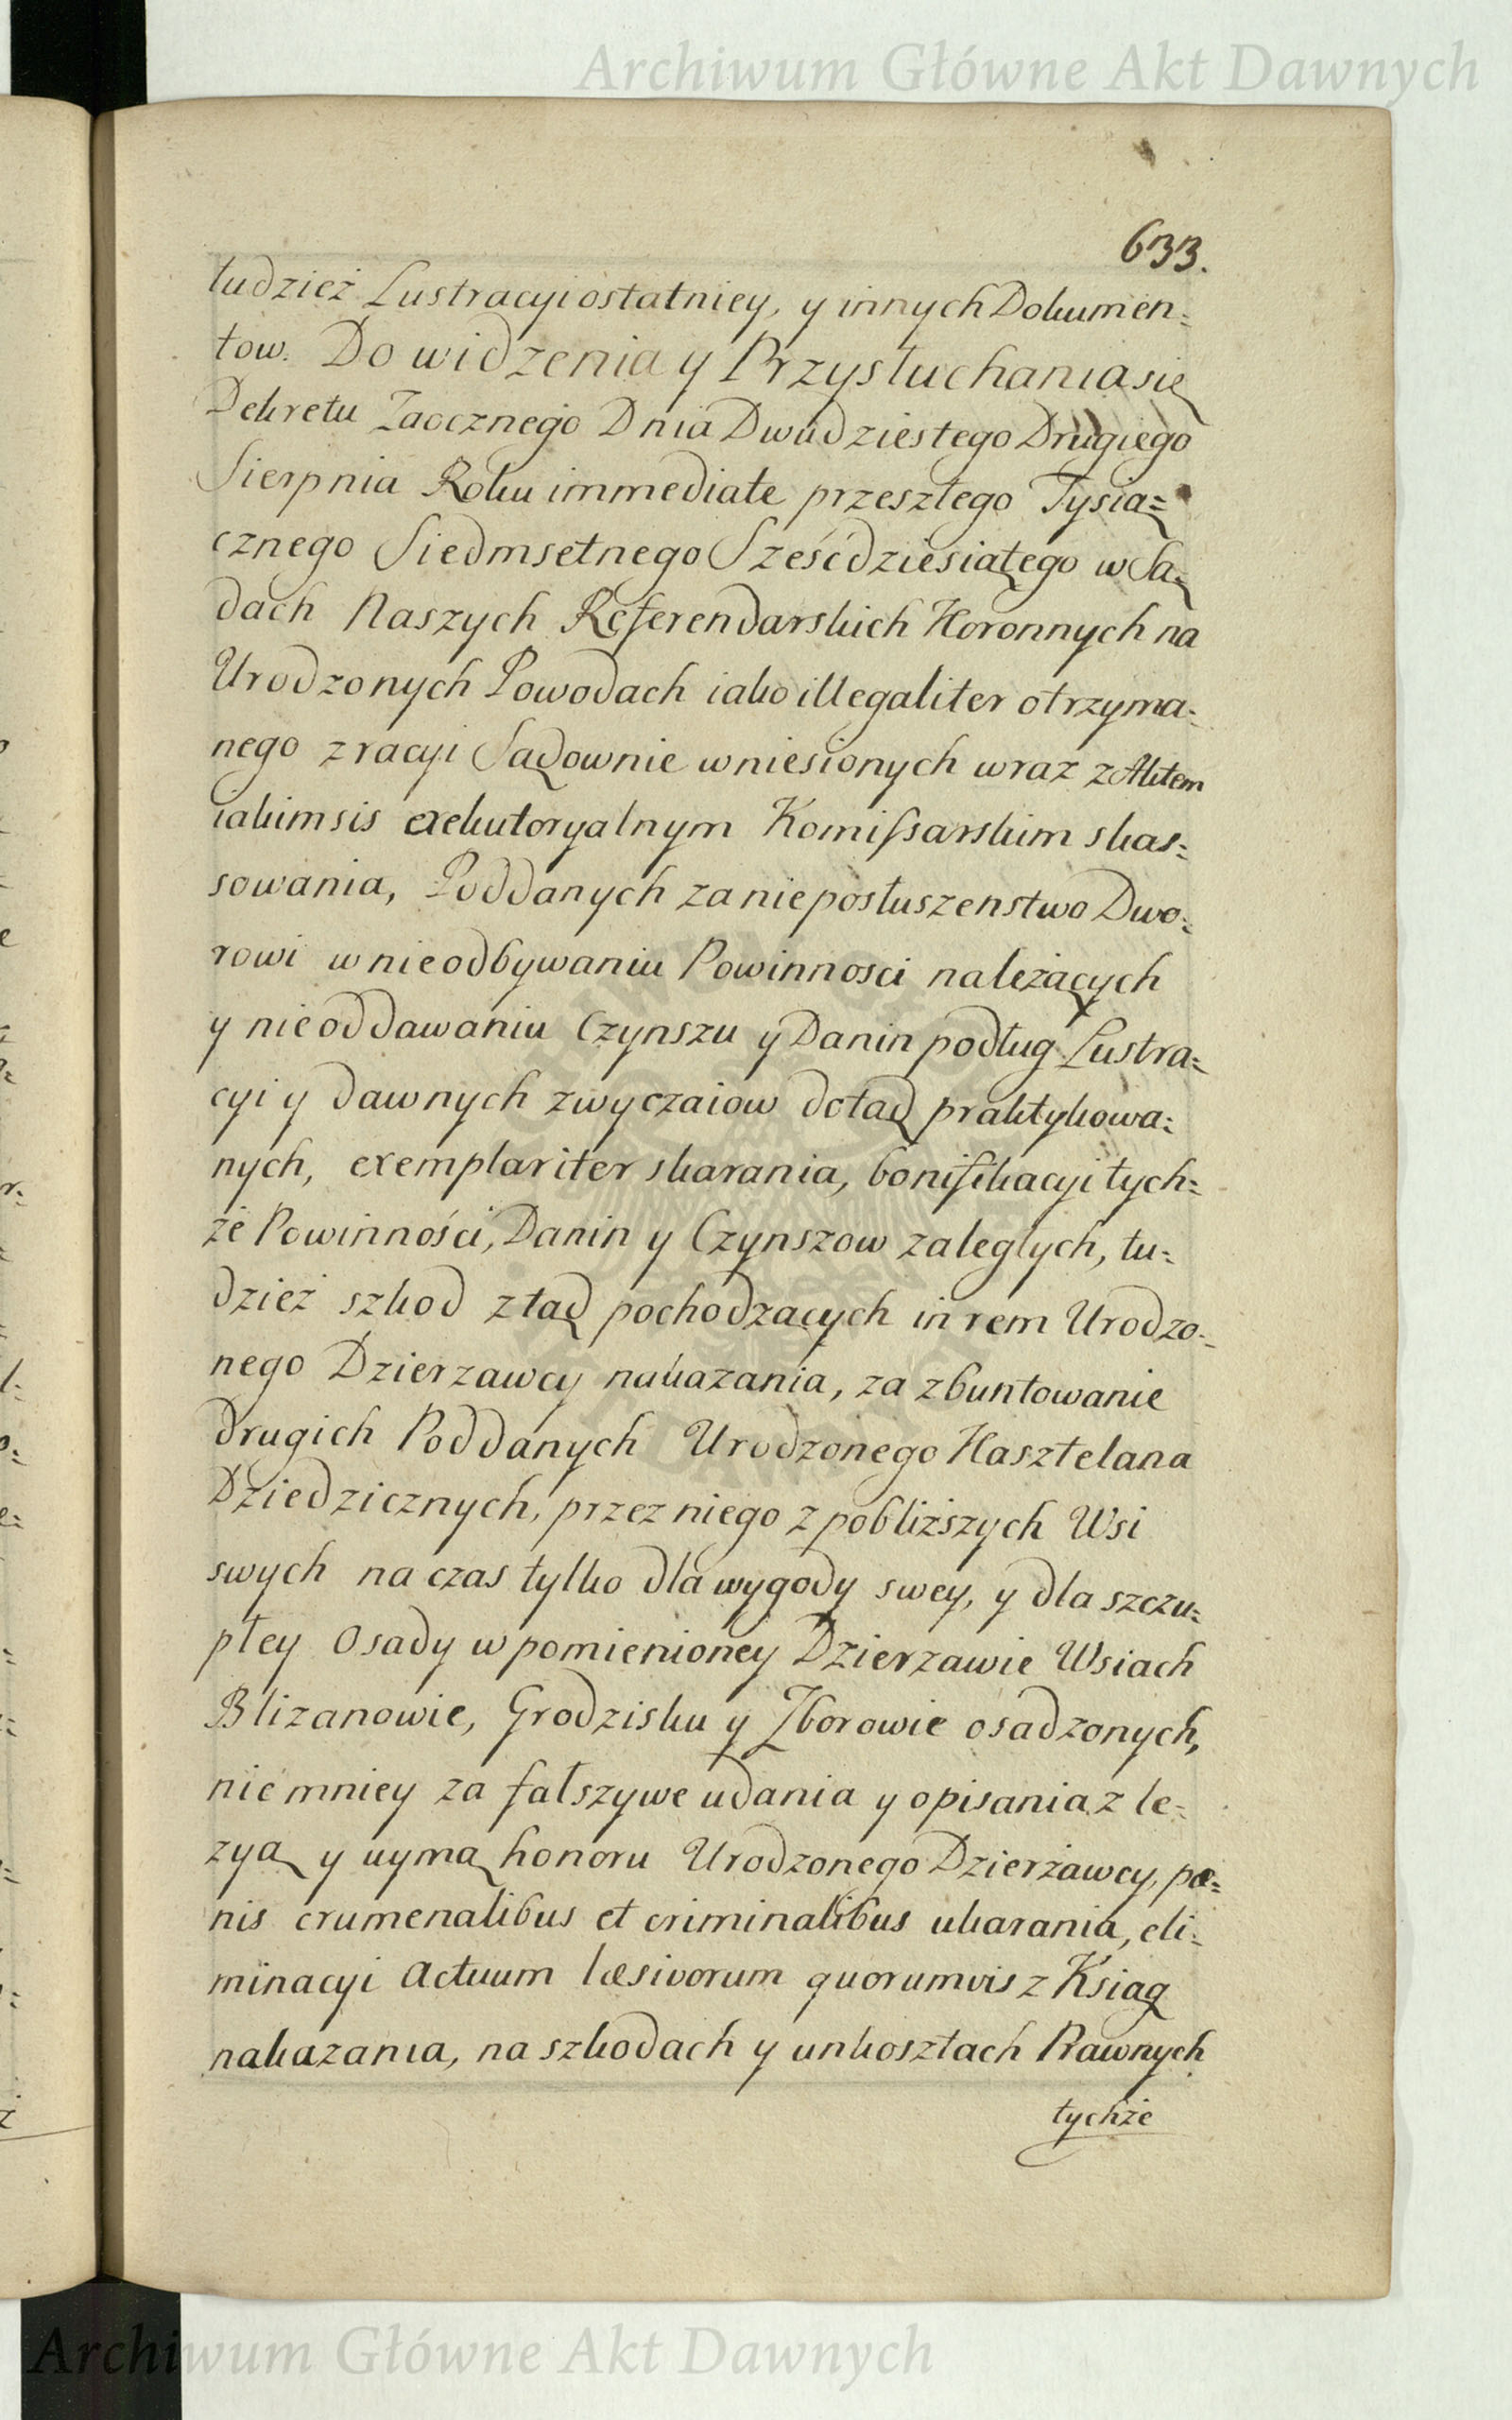 Archiwum Główne Akt Dawnych
633.
tudzież Lustracyi ostatniey, y innych Dokumen=
tow. Do widzenia y Przysłuchania się
Dekretu Zaocznego Dnia Dwudziestego Drugiego
Sierpnia Roku immediate przeszłego Tysią=
cznego Siedmsetnego Sześćdziesiątego w Są=
dach Naszych Referendarskich Koronnych na
Urodzonych Powodach iako illegaliter otrzyma=
nego z racyi Sądownie wniesionych wraz z Aktem
iakimsis exekutoryalnym Komissarskim skas=
sowania, Poddanych za nieposłuszenstwo Dwo=
rowi w nieodbywaniu Powinnosci należących
y nieoddawaniu Czynszu y Danin podług Lustra=
cyi y dawnych zwyczaiow dotąd praktykowa=
nych, exemplariter skarania, bonifikacyi tych=
że Powinności, Danin y Czynszow zaległych, tu=
dzież szkod ztąd pochodzących in rem Urodzo=
nego Dzierzawcy nakazania, za zbuntowanie
drugich Poddanych Urodzonego Kasztelana
Dziedzicznych, przez niego z pobliższych Wsi
swych na czas tylko dla wygody swey, y dla szczu=
płey Osady w pomienioney Dzierzawie Wsiach
Blizanowie, Grodzisku y Zborowie osadzonych,
nie mniey za fałszywe udania y opisania z le=
zyą y uymą honoru Urodzonego Dzierżawcy, pæ=
nis crumenalibus et criminalibus ukarania, eli=
minacyi Actuum læsivorum quorumvis z Ksiąg
nakazania, na szkodach y unkosztach Prawnych
tychże
Archiwum Główne Akt Dawnych